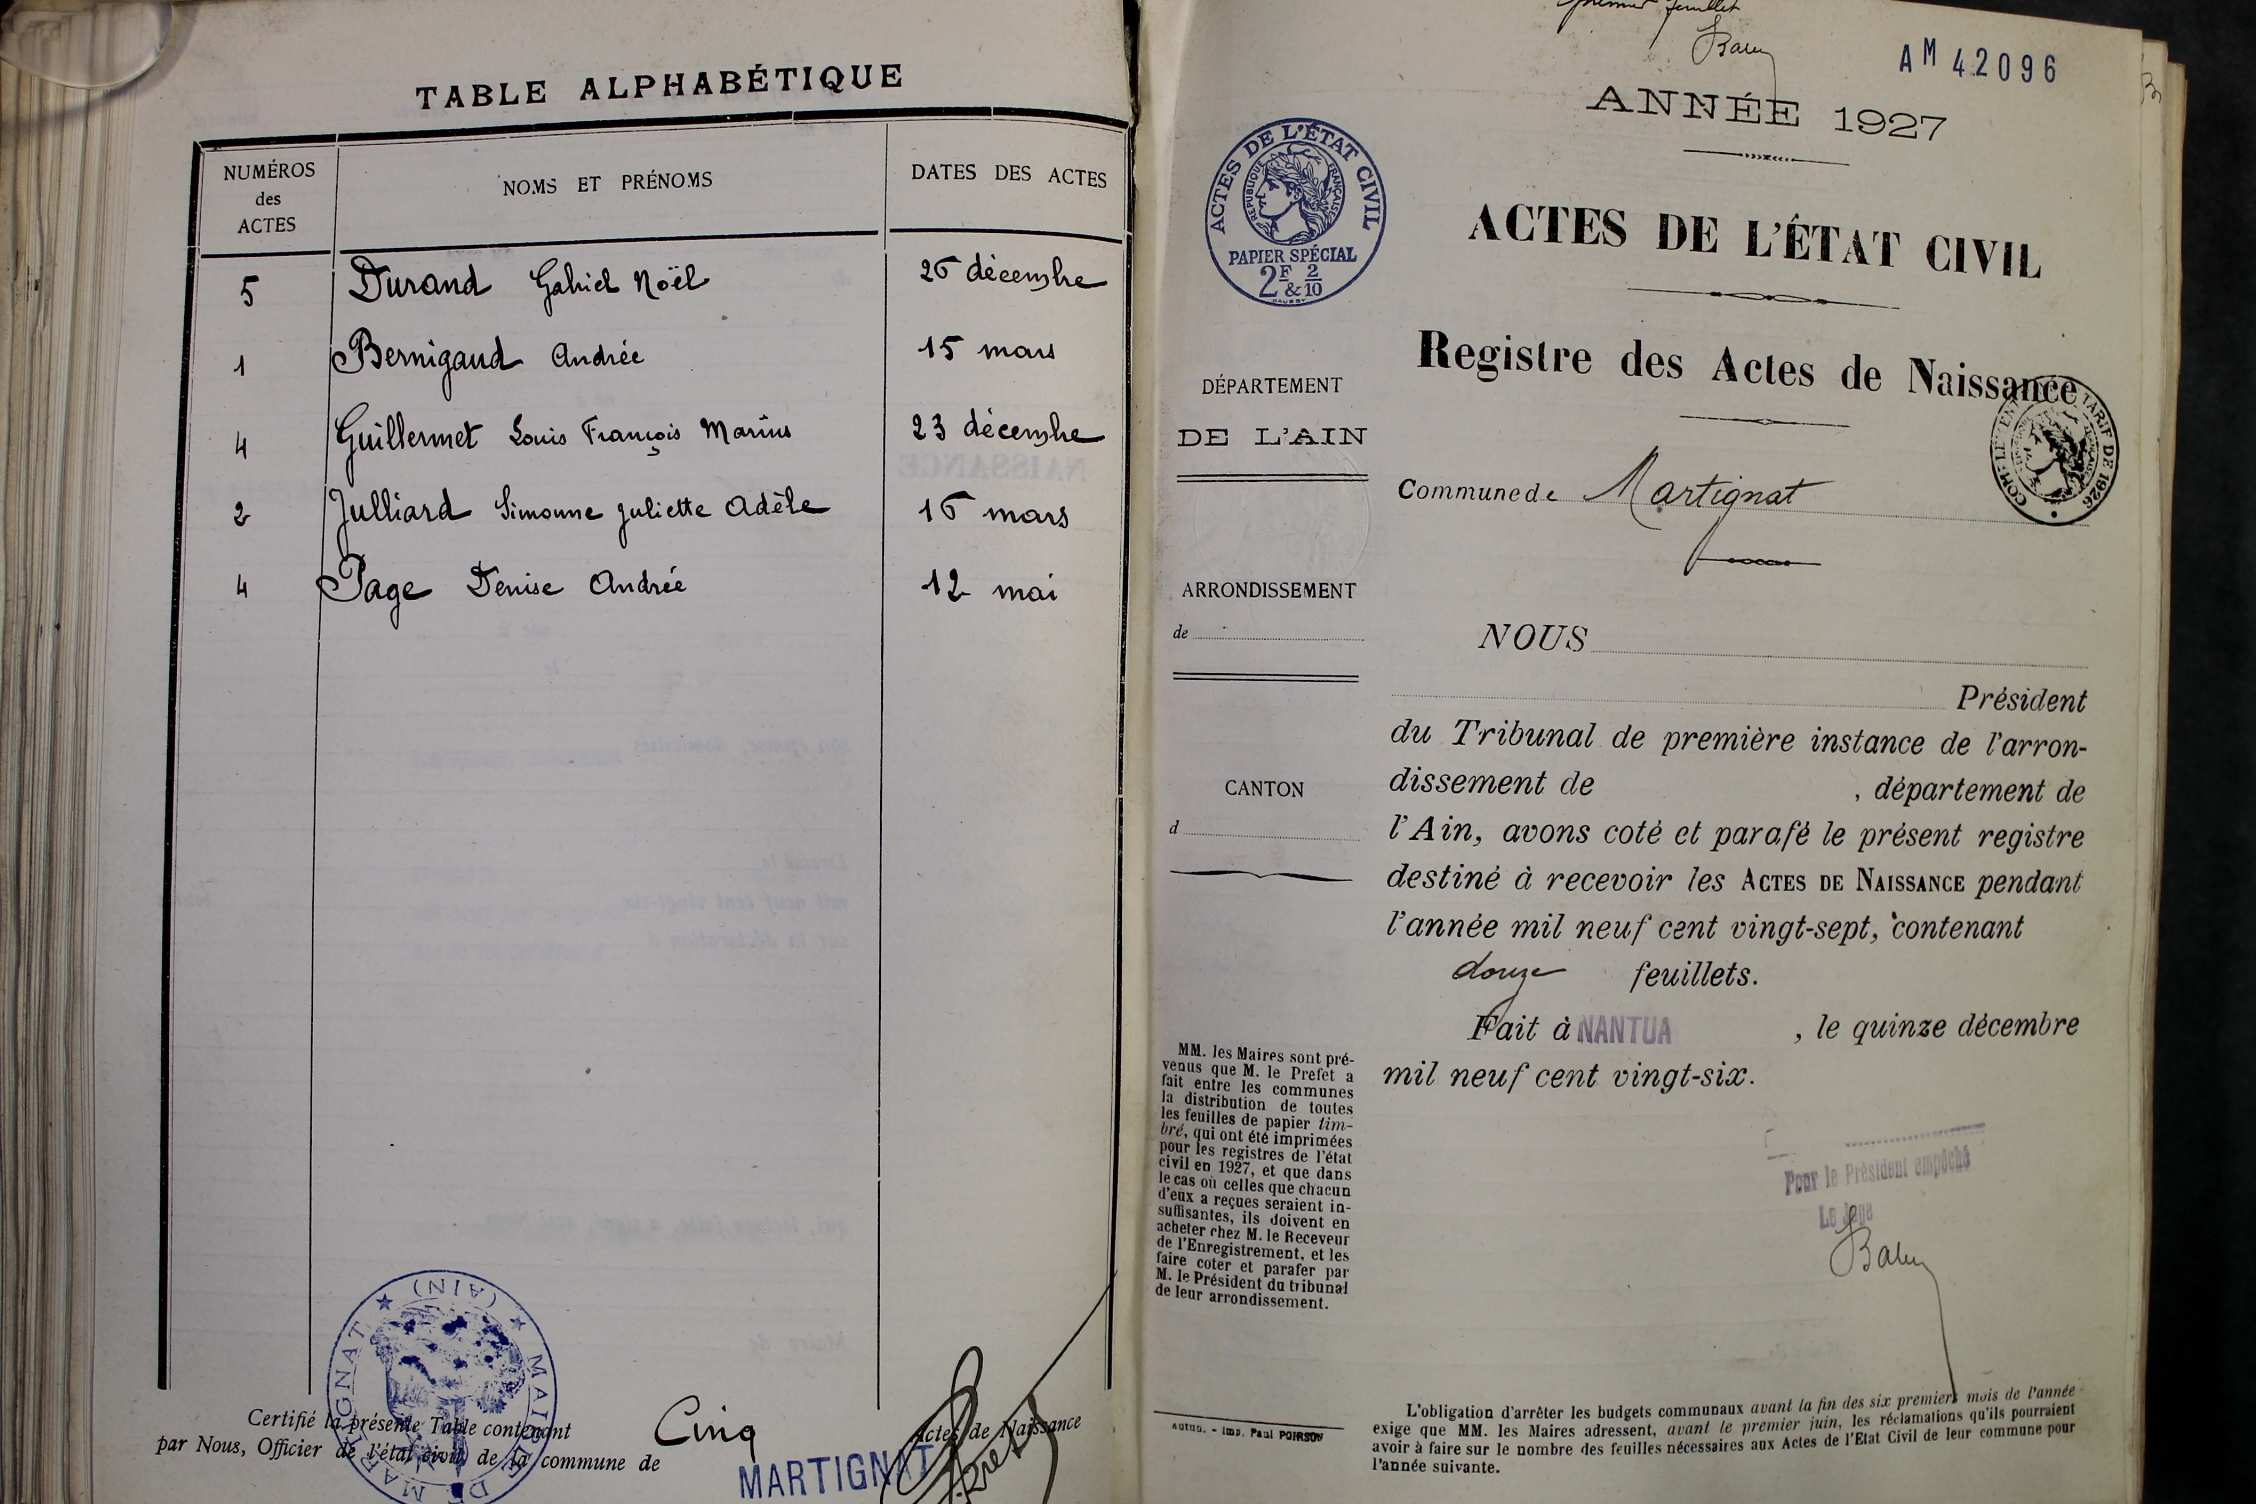 TABLE ALPHABÉTIQUE
NUMÉROS
des
ACTES
NOMS ET PRÉNOMS
DATES DES ACTES
5 Durand Gabriel Noël 26 décembre
1 Bernigaud Andrée 15 mars
4 Guillermet Louis François Marius 23 décembre
2 Julliard Simonne Juliette Adèle 16 mars
4 Page Denise Andrée 12 mai
MAIRIE DE MARTIGNAT (AIN)
Certifié la présente Table contenant Cinq Actes de Naissance
par Nous, Officier de l'état civil de la commune de MARTIGNAT
premier feuillet
AM 42096
ANNÉE 1927
ACTES DE L'ÉTAT CIVIL
RÉPUBLIQUE FRANÇAISE
PAPIER SPÉCIAL
2F & 2/10
ACTES DE L'ÉTAT CIVIL
Registre des Actes de Naissance
TARIF DE 1926
DÉPARTEMENT
DE L'AIN
Commune de Martignat
ARRONDISSEMENT
de
CANTON
d
NOUS
Président
du Tribunal de première instance de l'arron-
dissement de , département de
l'Ain, avons coté et parafé le présent registre
destiné à recevoir les ACTES DE NAISSANCE pendant
l'année mil neuf cent vingt-sept, contenant
douze feuillets.
Fait à NANTUA , le quinze décembre
mil neuf cent vingt-six.
MM. les Maires sont pré-
venus que M. le Prefet a
fait entre les communes
la distribution de toutes
les feuilles de papier tim-
bré, qui ont été imprimées
pour les registres de l'état
civil en 1927, et que dans
le cas où celles que chacun
d'eux a reçues seraient in-
suffisantes, ils doivent en
acheter chez M. le Receveur
de l'Enregistrement, et les
faire coter et parafer par
M. le Président du tribunal
de leur arrondissement.
Pour le Président empêché
Le Juge
Imp. Paul POIRSON
L'obligation d'arrêter les budgets communaux avant la fin des six premiers mois de l'année
exige que MM. les Maires adressent, avant le premier juin, les réclamations qu'ils pourraient
avoir à faire sur le nombre des feuilles nécessaires aux Actes de l'Etat Civil de leur commune pour
l'année suivante.